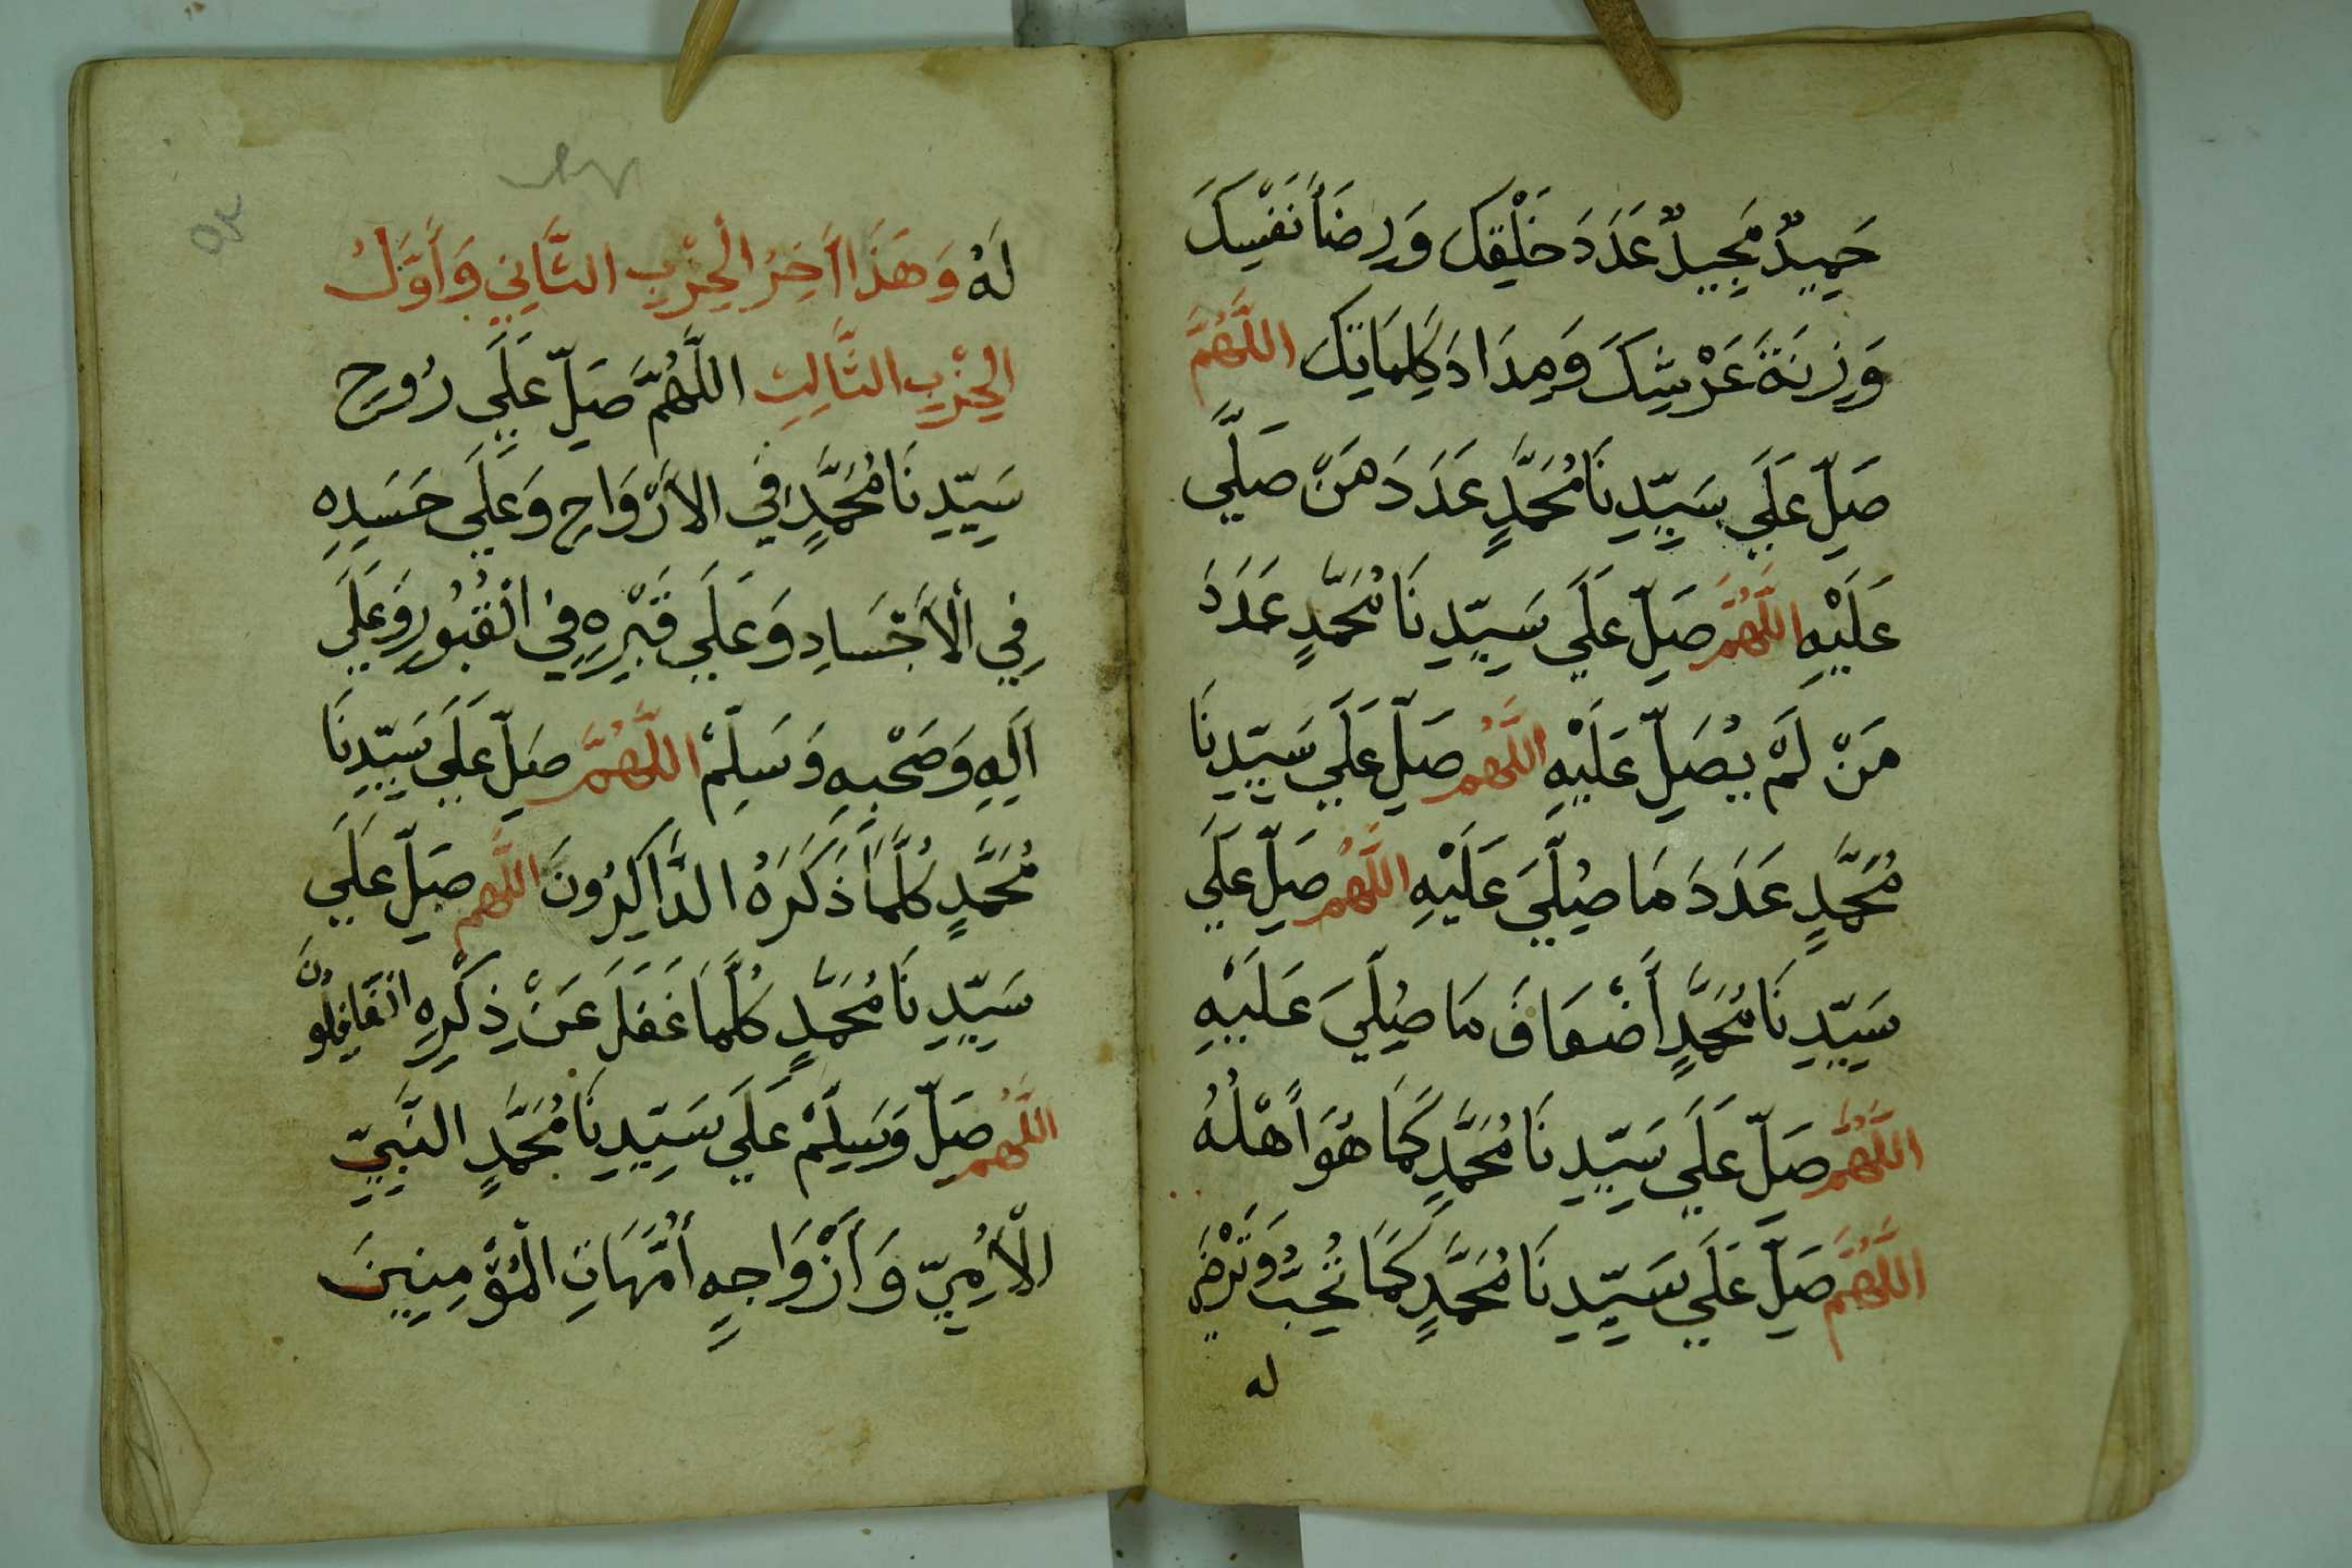 حَمِيدٌ مَجِيدٌ عَدَدَ خَلْقِكَ وَرِضَاَ نَفْسِكَ
وَزِنَةَ عَرْشِكَ وَمِدَادَ كَلِمَاتِكَ اللَّهُمَّ
صَلِّ عَلَي سَيِّدِنَا مُحَمَّدٍ عَدَدَ مَنْ صَلَّي
عَلَيْهِ اللَّهُمَّ صَلِّ عَلَي سَيِّدِنَا مُحَمَّدٍ عَدَدَ
مَنْ لَمْ يُصَلِّ عَلَيْهِ اللَّهُم صَلِّ عَلَي سَيِّدِنَا
مُحَمَّدٍ عَدَدَ مَا صُلِّيَ عَلَيْهِ اللَّهُم صَلِّ عَلَي
سَيِّدِنَا مُحَمَّدٍ أَضْعَافَ مَا صُلِّيَ عَلَيْهِ
اللَّهُم صَلِّ عَلَي سَيِّدِنَا مُحَمَّدٍ كَمَا هُوَ أَهْلُهُ
اللَّهُمَّ صَلِّ عَلَي سَيِّدِنَا مُحَمَّدٍ كَمَا تُحِبُّ وَتَرْضَي
له
لَهُ وَهَذَا اَخِرُ الْحِزْبِ الثَّانِي وَأَوَّلُ
الْحِزْبِ الثَّالِثِ اللَّهُمَّ صَلِّ عَلَي رُوحِ
سَيِّدِنَا مُحَمَّدٍ فِي الاَرْوَاحِ وَعَلَي جَسَدِهِ
فِي الْأَجْسَادِ وَعَلَي قَبْرِهِ فِي الْقُبُورِ وَعَلَي
اَلِهِ وَصَحْبِهِ وَسَلِّمْ اللَّهُمَّ صَلِّ عَلَي سَيِّدِنَا
مُحَمَّدٍ كُلَّمَا ذَكَرَهُ الذَّاكِرُونَ اللَّهُم صَلِّ عَلَي
سَيِّدِنَا مُحَمَّدٍ كُلَّمَا غَفَلَ عَنْ ذِكْرِهِ الْغَافِلُونَ
اللَّهُم صَلِّ وَسَلِّمْ عَلَي سَيِّدِنَا مُحَمَّدٍ النَّبِيِّ
الْأُمِيِّ وَأَزْوَاجِهِ أُمَّهَاتِ الْمُؤْمِنِينَ